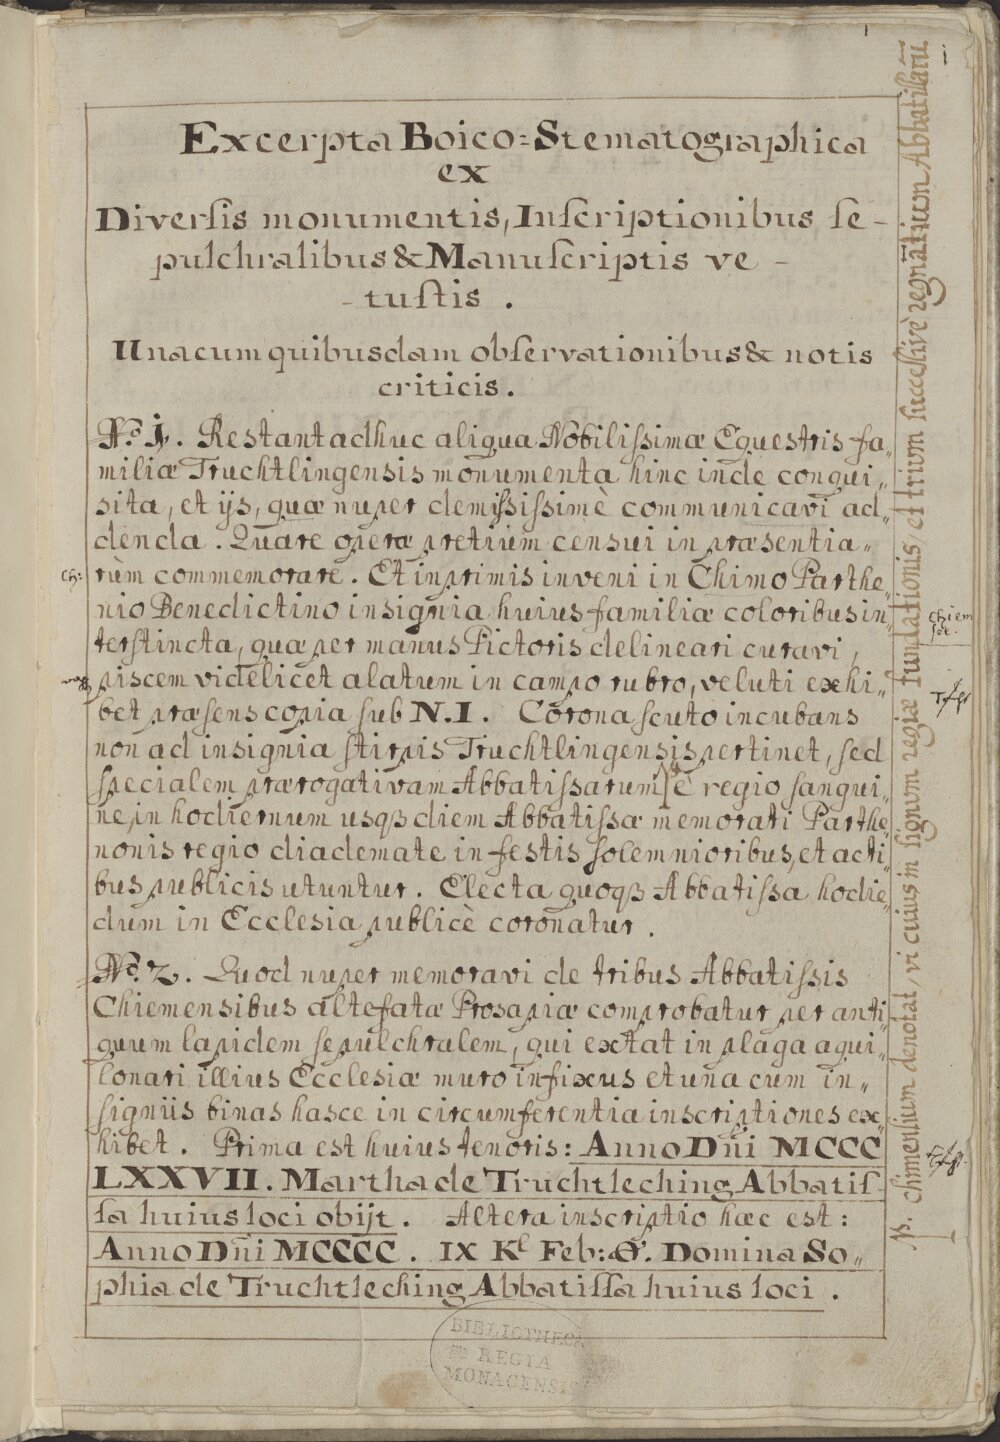 Excerpta Boico=Stematographica
ex
Diversis monumentis, Inscriptionibus se-
pulchralibus & Manuscriptis ve-
-tustis.
Unacum quibusdam observationibus & notis
criticis.
No. 1. Restant adhuc aliqua Nobilissimæ Equestris fa„
miliæ Truchtlingensis monumenta hinc inde conqui„
sita, et ijs, quæ nuper demississimè communicavi ad„
denda. Quare operæ pretium censui in præsentia„
rùm commemorare. Et inprimis inveni in Chimo Parthe„
nio Benedictino insignia huius familiæ coloribus in„
terstincta, quæ per manus Pictoris delineari curavi,
piscem videlicet alatum in campo rubro, veluti exhi„
bet præsens copia sub N. I. Corona scuto incubans
non ad insignia stirpis Truchtlingensis pertinet, sed
specialem prærogativam Abbatissarum è regio sangui„
ne, in hodiernum usqȝ diem Abbatissæ memorati Parthe„
nonis regio diademate in festis solemnioribus, et acti„
bus publicis utuntur. Electa quoqȝ Abbatissa hodie„
dum in Ecclesia publicè coronatur.
No. 2. Quod nuper memoravi de tribus Abbatissis
Chiemensibus altefatæ Prosapiæ comprobatur per anti„
quum lapidem sepulchralem, qui extat in plaga aqui„
lonari illius Ecclesiæ muro infixus et una cum in„
signiis binas hasce in circumferentia inscriptiones ex„
hibet. Prima est huius tenoris: Anno Dni MCCC
LXXVII. Martha de Truchtleching Abbatis-
sa huius loci obijt. Altera inscriptio hæc est:
Anno Dni MCCCC. IX Kl Feb: Ø. Domina So„
phia de Truchtleching Abbatissa huius loci.
chimensium denotat, vi cuius in signum regiæ fundationis, et trium successivè regnãtium Abbatissarũ
ch:
chiem
see.
1
BIBLIOTHECA
REGIA
MONACENSIS